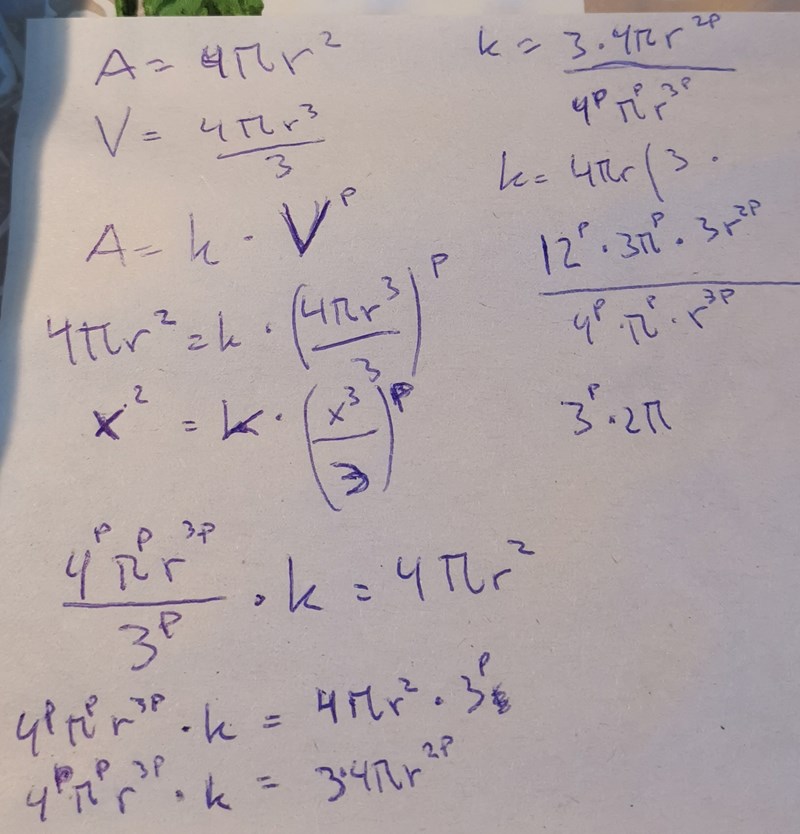 A = 4πr²
V = 4πr³/3
A = k · V^p
4πr² = k · (4πr³/3)^p
x² = k · (x³/3)^p
4^p π^p r^3p / 3^p · k = 4πr²
4^p π^p r^3p · k = 4πr² · 3^p
4^p π^p r^3p · k = 3·4πr^2p
k = 3·4πr^2p / 4^p π^p r^3p
k = 4πr(3 ·
12^p · 3π^p · 3r^2p / 4^p · π^p · r^3p
3^p · 2π